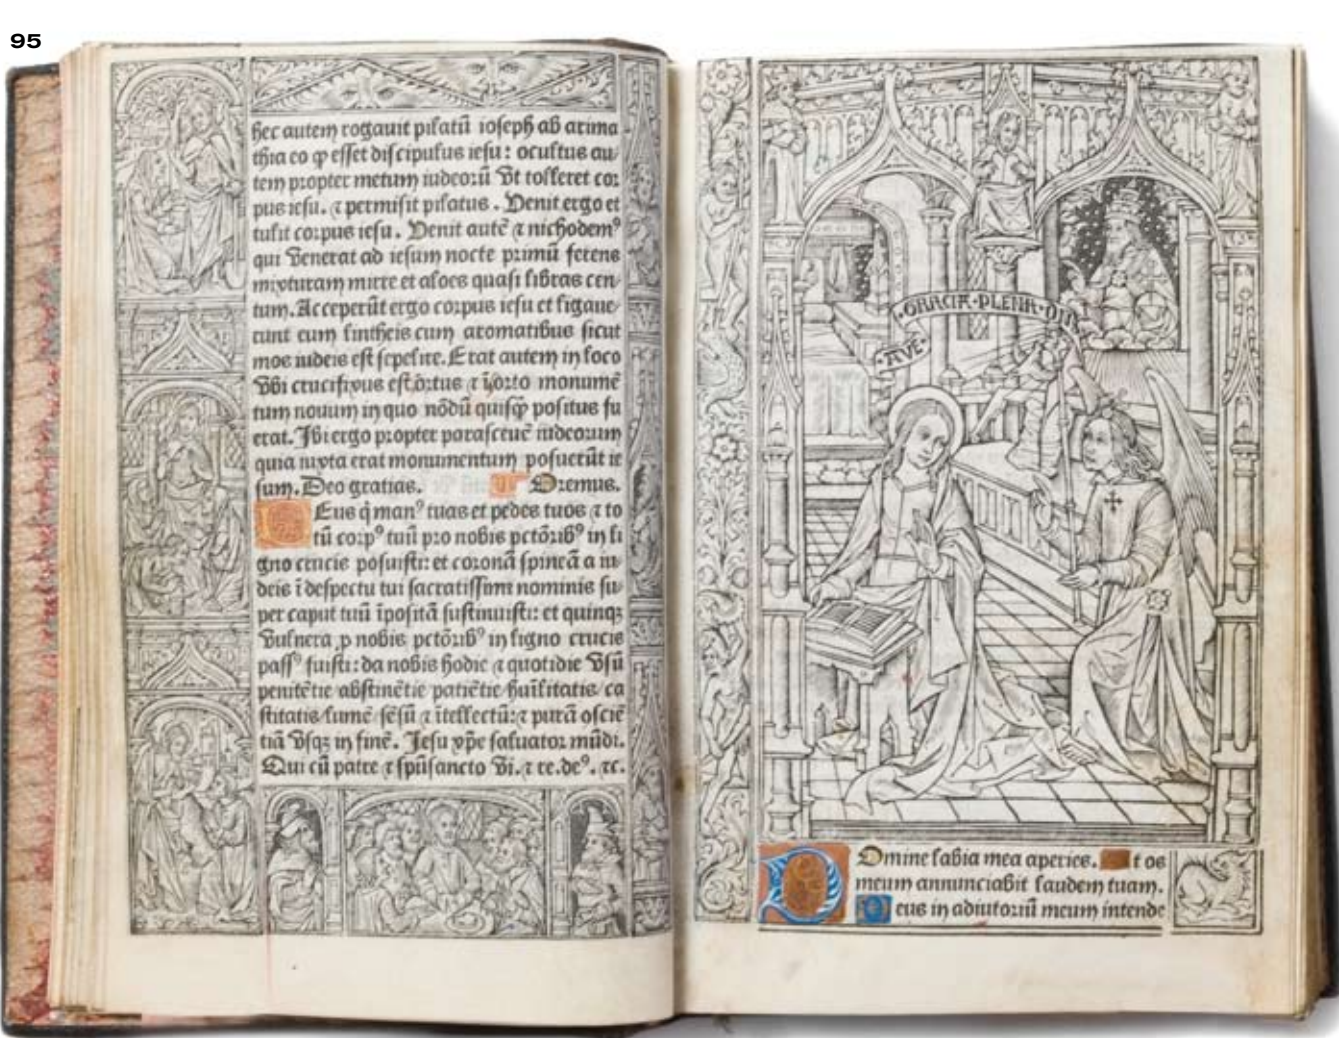 95
hec autem rogauit pilatū ioseph ab arima
thia eo ꝙ esset discipulus iesu: ocultus au
tem propter metum iudeorū Vt tolleret cor
pus iesu. ⁊ permisit pilatus. Venit ergo et
tulit corpus iesu. Venit autē ⁊ nichodemꝰ
qui Venerat ad iesum nocte primū ferens
mixturam mirre et aloes quasi libras cen
tum. Acceperūt ergo corpus iesu et ligaue
runt eum lintheis cum aromatibus sicut
mos iudeis est sepelire. Erat autem in loco
Vbi crucifixus est ortus ⁊ ī orto monumē
tum nouum in quo nōdū quisꝙ positus fu
erat. Ibi ergo propter parasceuē iudeorum
quia iuxta erat monumentum posuerūt ie
sum. Deo gratias. Oremus.
Eus q̄ manꝰ tuas et pedes tuos ⁊ to
tū corpꝰ tuū pro nobis pctōribꝰ in li
gno crucis posuisti: et coronā spineā a iu
deis ī despectu tui sacratissimi nominis su
per caput tuū īpositā sustinuisti: et quinqꝫ
Vulnera ꝓ nobis pctōribꝰ in ligno crucis
passꝰ fuisti: da nobis hodie ⁊ quotidie Vsū
penitētie abstinētie patiētie huīlitatis ca
stitatis lumē sēsū ⁊ ītellectū: ⁊ purā ꝯsciē
tiā Vsqꝫ in finē. Iesu xp̄e saluator mūdi.
Qui cū patre ⁊ spūsancto Vi. ⁊ re. deꝰ. ⁊c.
AVE
GRACIA·PLENA·DN̄S
Domine labia mea aperies. t os
meum annunciabit laudem tuam.
Deus in adiutoriū meum intende